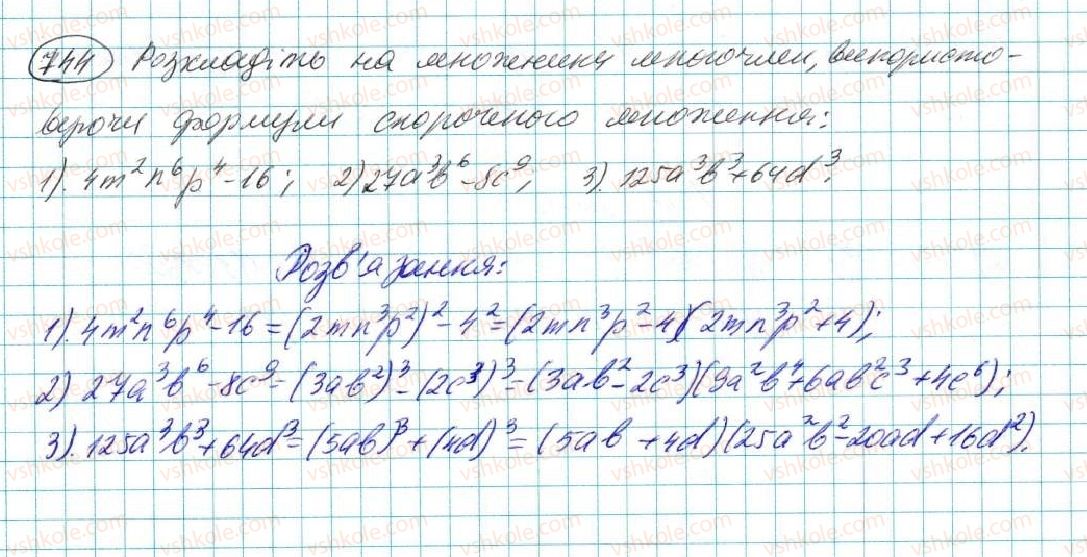 744 Розкладіть на множники многочлен, використо-
вуючи формули скороченого множення:
1). 4m²n⁶p⁴-16; 2) 27a³b⁶-8c⁹; 3). 125a³b³+64d³.
Розв'язання:
1). 4m²n⁶p⁴-16=(2mn³p²)²-4²=(2mn³p²-4)(2mn³p²+4);
2) 27a³b⁶-8c⁹=(3ab²)³-(2c³)³=(3ab²-2c³)(9a²b⁴+6ab²c³+4c⁶);
3). 125a³b³+64d³=(5ab)³+(4d)³=(5ab+4d)(25a²b²-20ad+16d²).